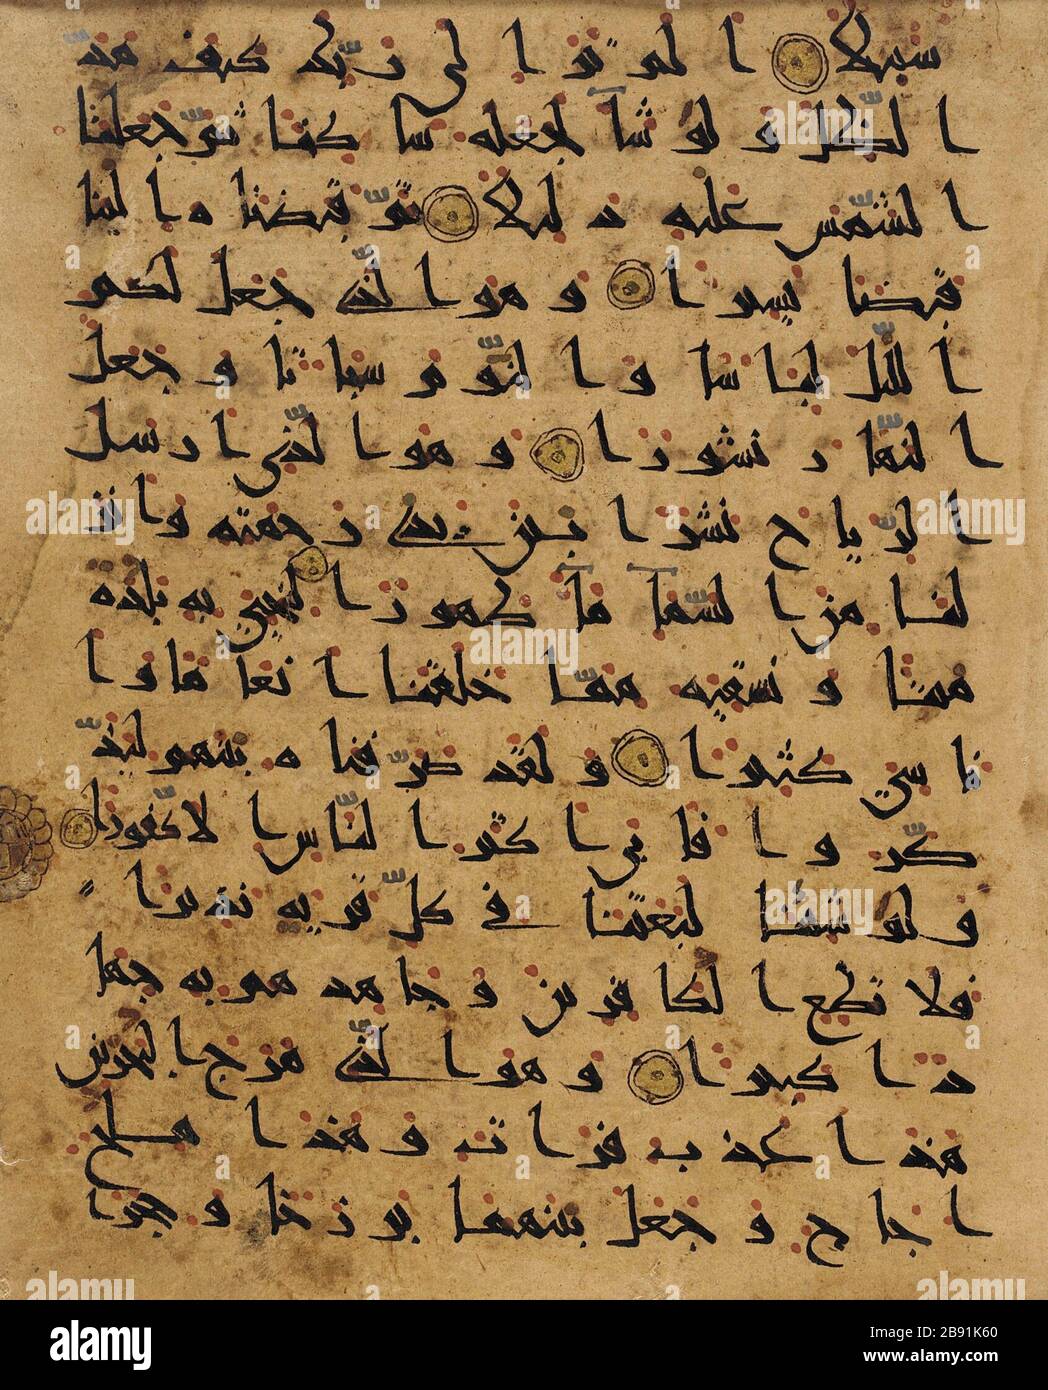 سبيلا ا لم تر ا لى ربك كيف مد
ا لظل و لو شآ لجعله سا كنا ثمّ جعلنا
ا لشمّس عليه د ليلا ثمّ قبضنا ه ا لينا
قبضا يسيرا و هو ا لذّي جعل لكم
ا للّيل لبا سا و ا لنّوم سبا تا و جعل
ا لنّها ر نشورا و هو ا لذّي ا رسل
ا لرّيا ح نشرا بين يدي رحمته و انز
لنا من ا لسّمآ مآ طهورا لنحيي به بلدة
ميتا و نسقيه ممّا خلقنا ا نعا ما و ا
نا سي كثيرا و لقد صرّفنا ه بينهم ليذّ
كّروا فا بى ا كثر ا لنّاس ا لا كفورا
و لو شئنا لبعثنا في كلّ قرية نذيرا
فلا تطع ا لكا فرين و جا هد هم به جها
د ا كبيرا و هو ا لذّي مرج ا لبحرين
هذا عذب فرات و هذا ملح
ا جا ج و جعل بينهما برزخا و حجرا
alamy
Image ID: 2B91K60
www.alamy.com